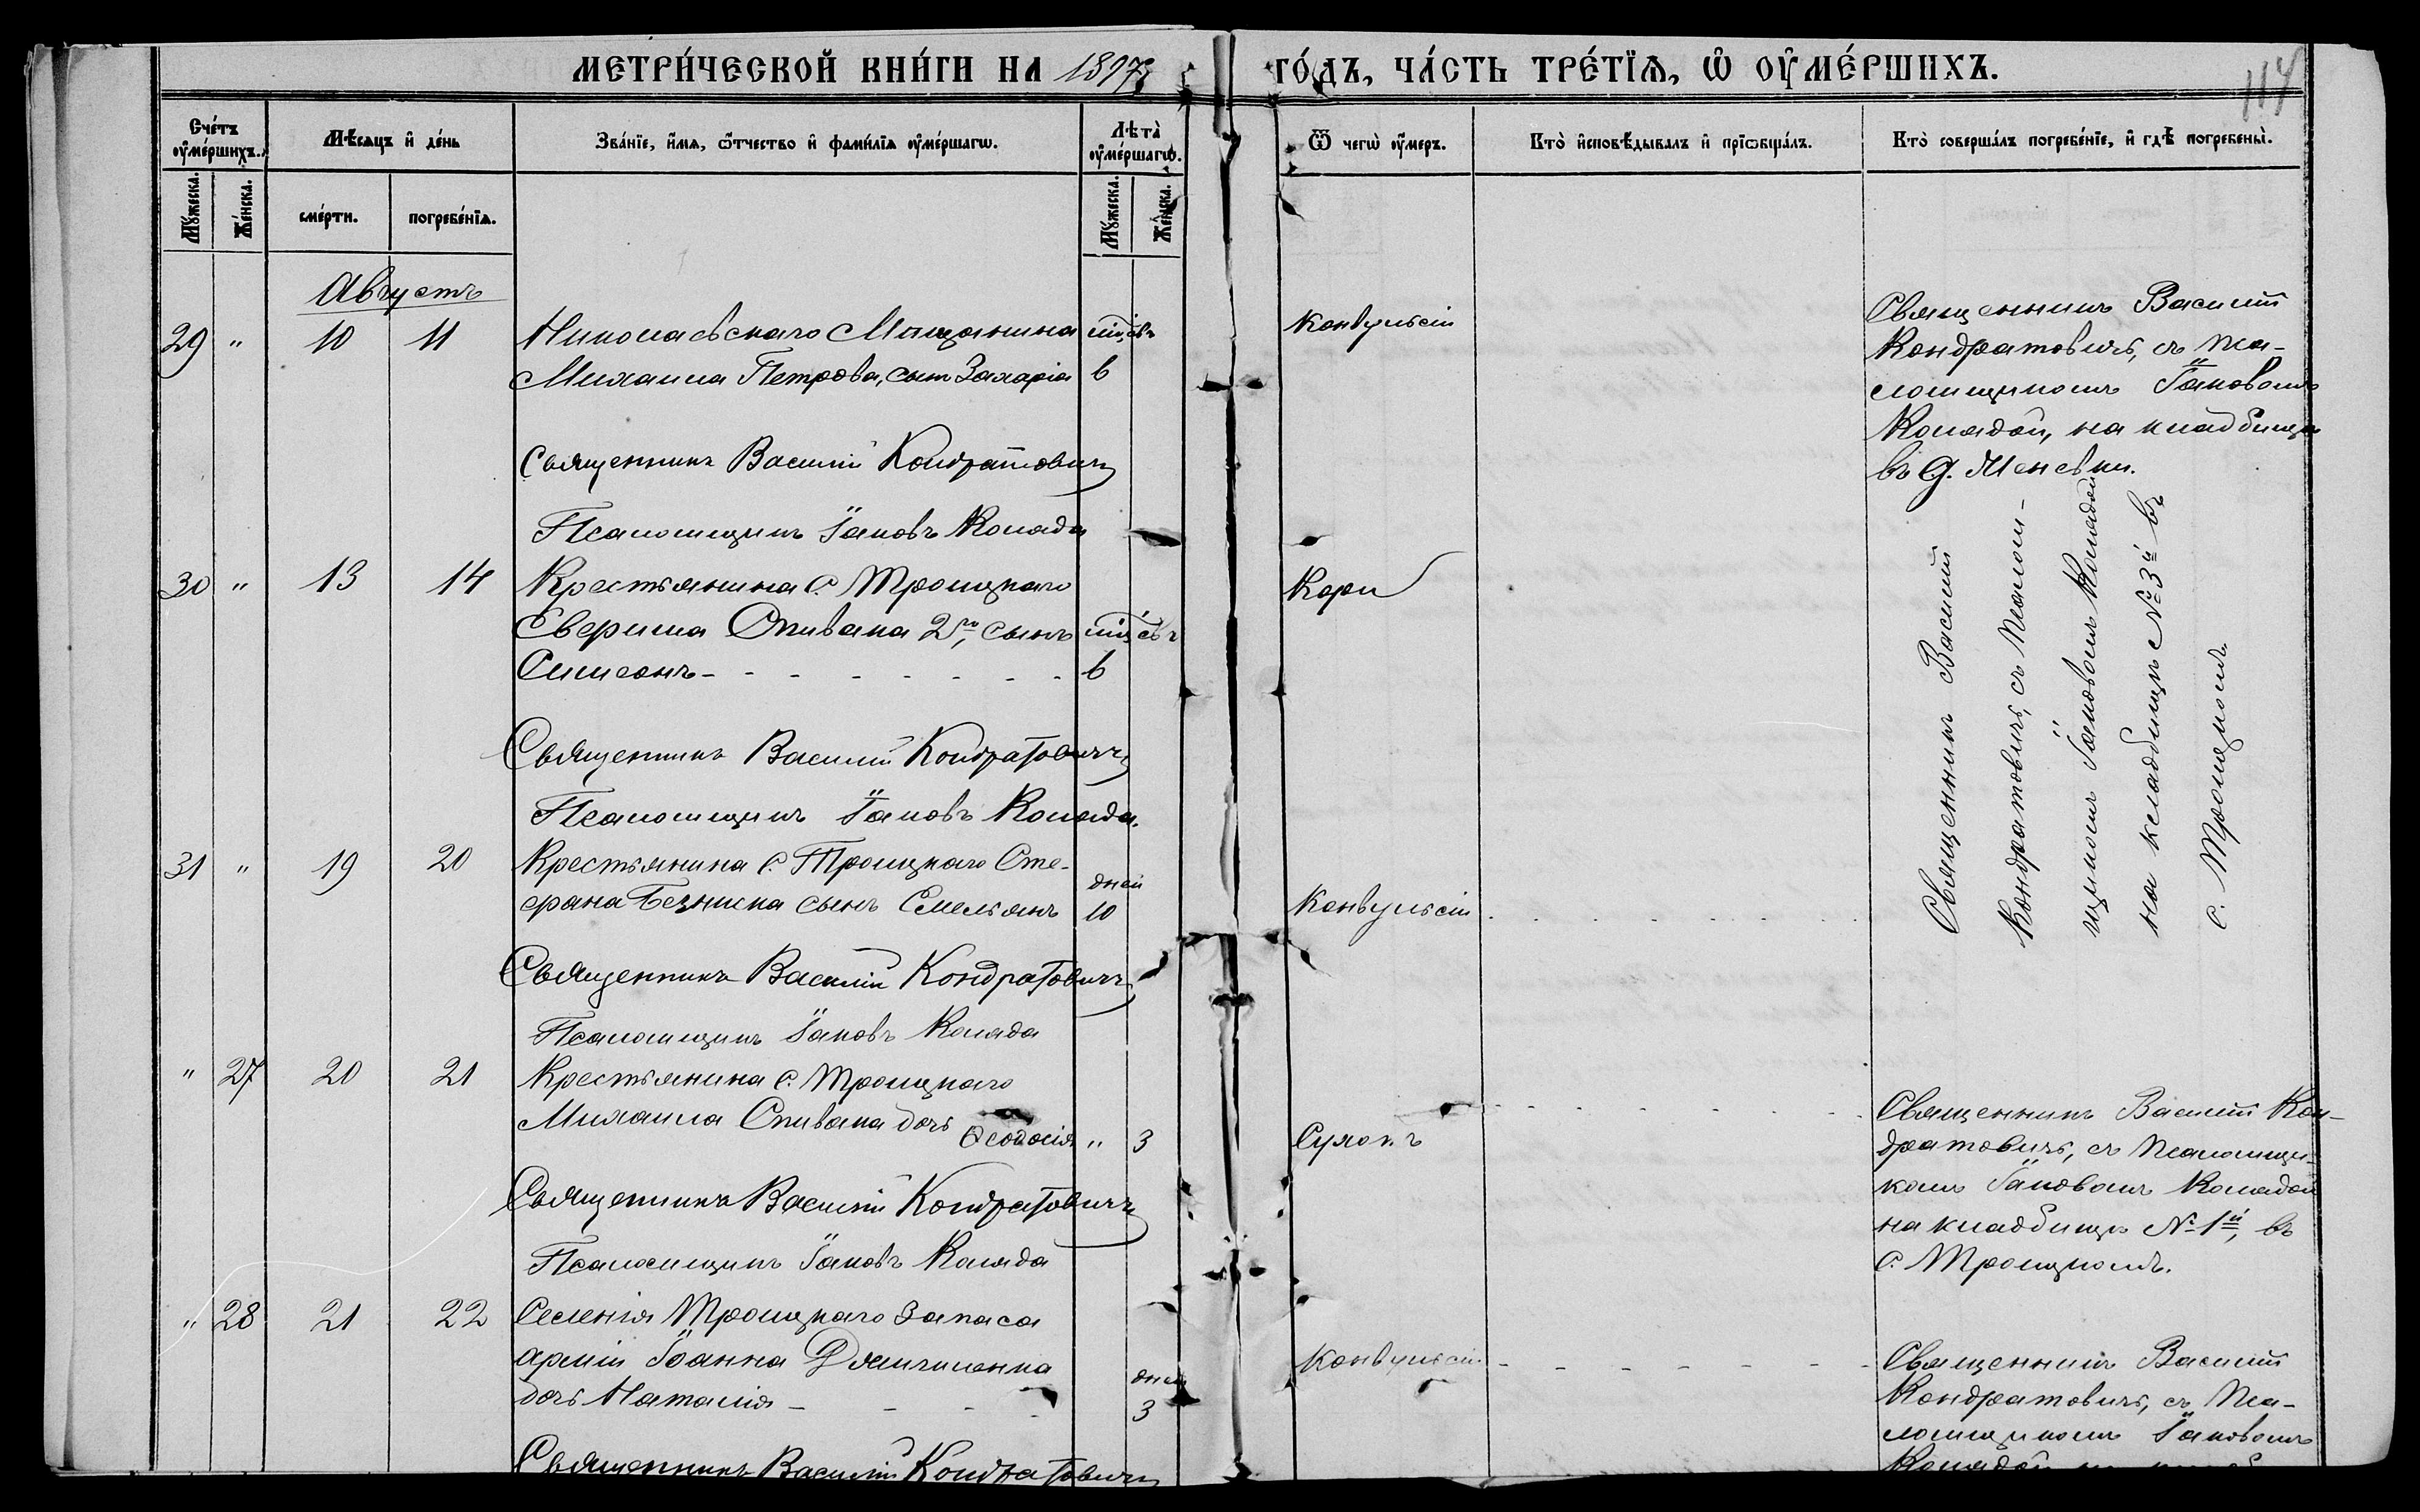 МЕТРИ́ЧЕСКОЙ КНИ́ГИ НА 1897
ГО́ДЪ, ЧА́СТЬ ТРЕ́ТЇѦ, Ѡ҆ ОУ҆МЕ́РШИХЪ.
114
Сче́тъ оу҆ме́ршихъ.
Мѣ́сяцъ и҆ де́нь
Зва́нїе, и҆́мѧ, ѻ҆́тчество и҆ фами́лїѧ оу҆ме́ршагѡ.
Лѣта̀ оу҆ме́ршагѡ.
Ѿ чегѡ̀ оу҆́меръ.
Кто̀ и҆сповѣ́дывалъ и҆ прїѻбща́лъ.
Кто̀ соверша́лъ погребе́нїе, и҆ гдѣ̀ погребены̀.
Мꙋ́жеска.
Же́нска.
сме́рти.
погребе́нїѧ.
Мꙋ́жеска.
Же́нска.
Августъ
29 " 10 11 Николаевскаго Мѣщанина мѣс.
Михаила Петрова, сынъ Захарія 6
Конвульсіи
Священникъ Василій
Кондратовичъ, съ Пса-
ломщикомъ Іаковомъ
Колядой, на кладбищѣ
въ д.
Священникъ Василій Кондратовичъ
Псаломщикъ Іаковъ Коляда
30 " 13 14 Крестьянина с. Троицкаго
Спивака 2го, сынъ мѣс.
Симеонъ - - - - - - - - 6
Кори
Священникъ Василій
Кондратовичъ, съ Псалом-
щикомъ Іаковомъ Колядой
на кладбищѣ № 3й въ
с. Троицкомъ.
Священникъ Василій Кондратовичъ
Псаломщикъ Іаковъ Коляда.
31 " 19 20 Крестьянина с. Троицкаго Сте-
фана сынъ Емельянъ дней 10
Конвульсіи
Священникъ Василій Кондратовичъ
Псаломщикъ Іаковъ Коляда
" 27 20 21 Крестьянина с. Троицкаго
Михаила Спивака дочь Ѳеодосія " 3
Священникъ Василій Кон-
дратовичъ, съ Псаломщи-
комъ Іаковомъ Колядой
на кладбищѣ № 1й, въ
с. Троицкомъ.
Священникъ Василій Кондратовичъ
Псаломщикъ Іаковъ Коляда
" 28 21 22 Селенія Троицкаго запаса
арміи Іоанна
дочь Наталія - - - - дней 3
Конвульсіи
Священникъ Василій
Кондратовичъ, съ Пса-
ломщикомъ Іаковомъ
Колядой
Священникъ Василій Кондратовичъ